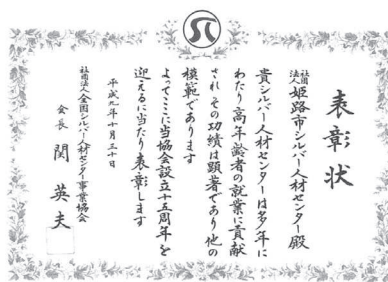 表彰状
社団法人 姫路市シルバー人材センター殿
貴シルバー人材センターは多年に
わたり高年齢者の就業に貢献
され その功績は顕著であり他の
模範であります
よってここに当協会設立十五周年を
迎えるに当たり表彰します
平成九年十月三十日
社団法人全国シルバー人材センター事業協会
会長 関 英夫